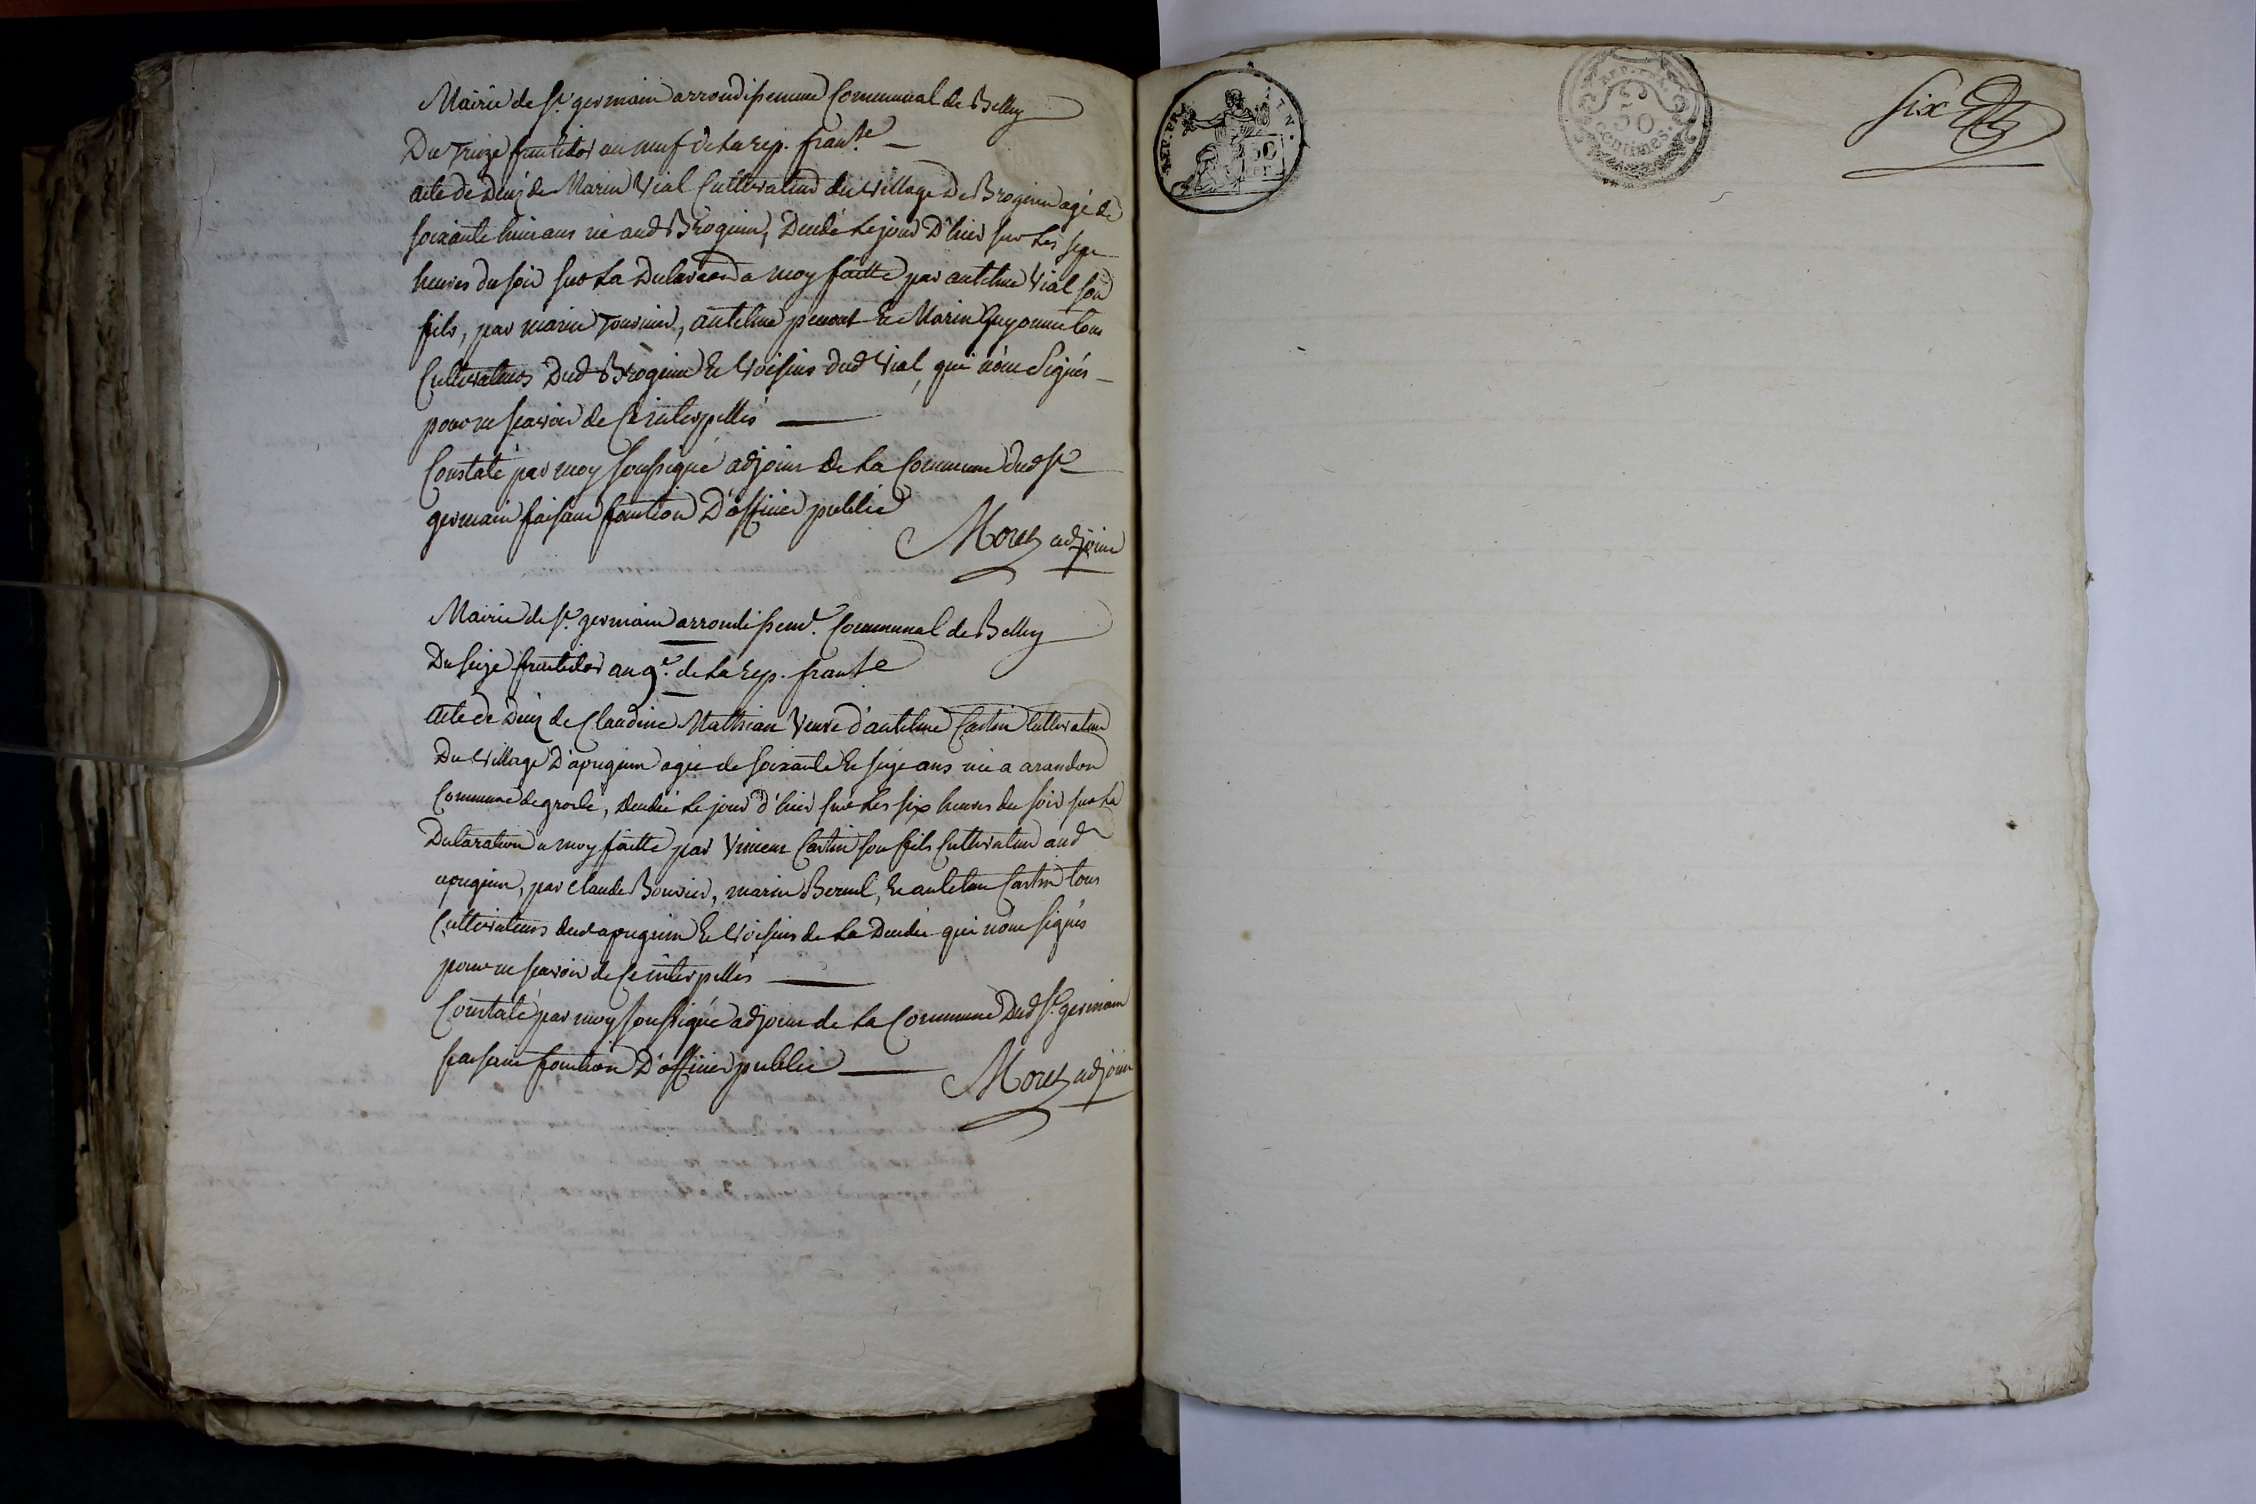 Mairie de St germain arrondissement Communal de Belley
Du Treize fructidor an neuf de La rep. franse
acte de Decés de Marin Vial Cultivateur du village De Brognin agé de
soixante huit ans né aud Brognin, Decedé Le jour D'hier sur Les sept
heures du soir sur La Declaraon a moy faitte par antelme Vial son
fils, par marin Tournier, antelme penont Et Marin Guyonnet tous
Cultivateurs Dud Brognin Et Voisins dud Vial, qui n'ont Signés
pour ne scavoir de Ce interpellés
Constaté par moy soussigné adjoint de La Commune dud St
germain faisant fonction D'officier public
Moret adjoint
Mairie de St germain arrondissemt. Communal de Belley
Du seize fructidor an 9e. de La rep. franse
acte de Decés de Claudine Mathian Veuve d'antelme Castin Cultivateur
Du Village D'apregnin agée de soixante Et seize ans née a arandon
Commune de grolé, decedée Le jour d'hier sur Les six heures du soir sur La
Declaration a moy faitte par Vincent Castin son fils Cultivateur aud
apregnin, par Claude Bouvier, marin Bernel, Et antelme Castin tous
Cultivateurs dud apregnin Et Voisins de La Decedée qui n'ont signés
pour ne scavoir de Ce interpellés
Constaté par moy soussigné adjoint de La Commune Dud St germain
faisant fonction D'officier public
Moret adjoint
50
centimes.
six